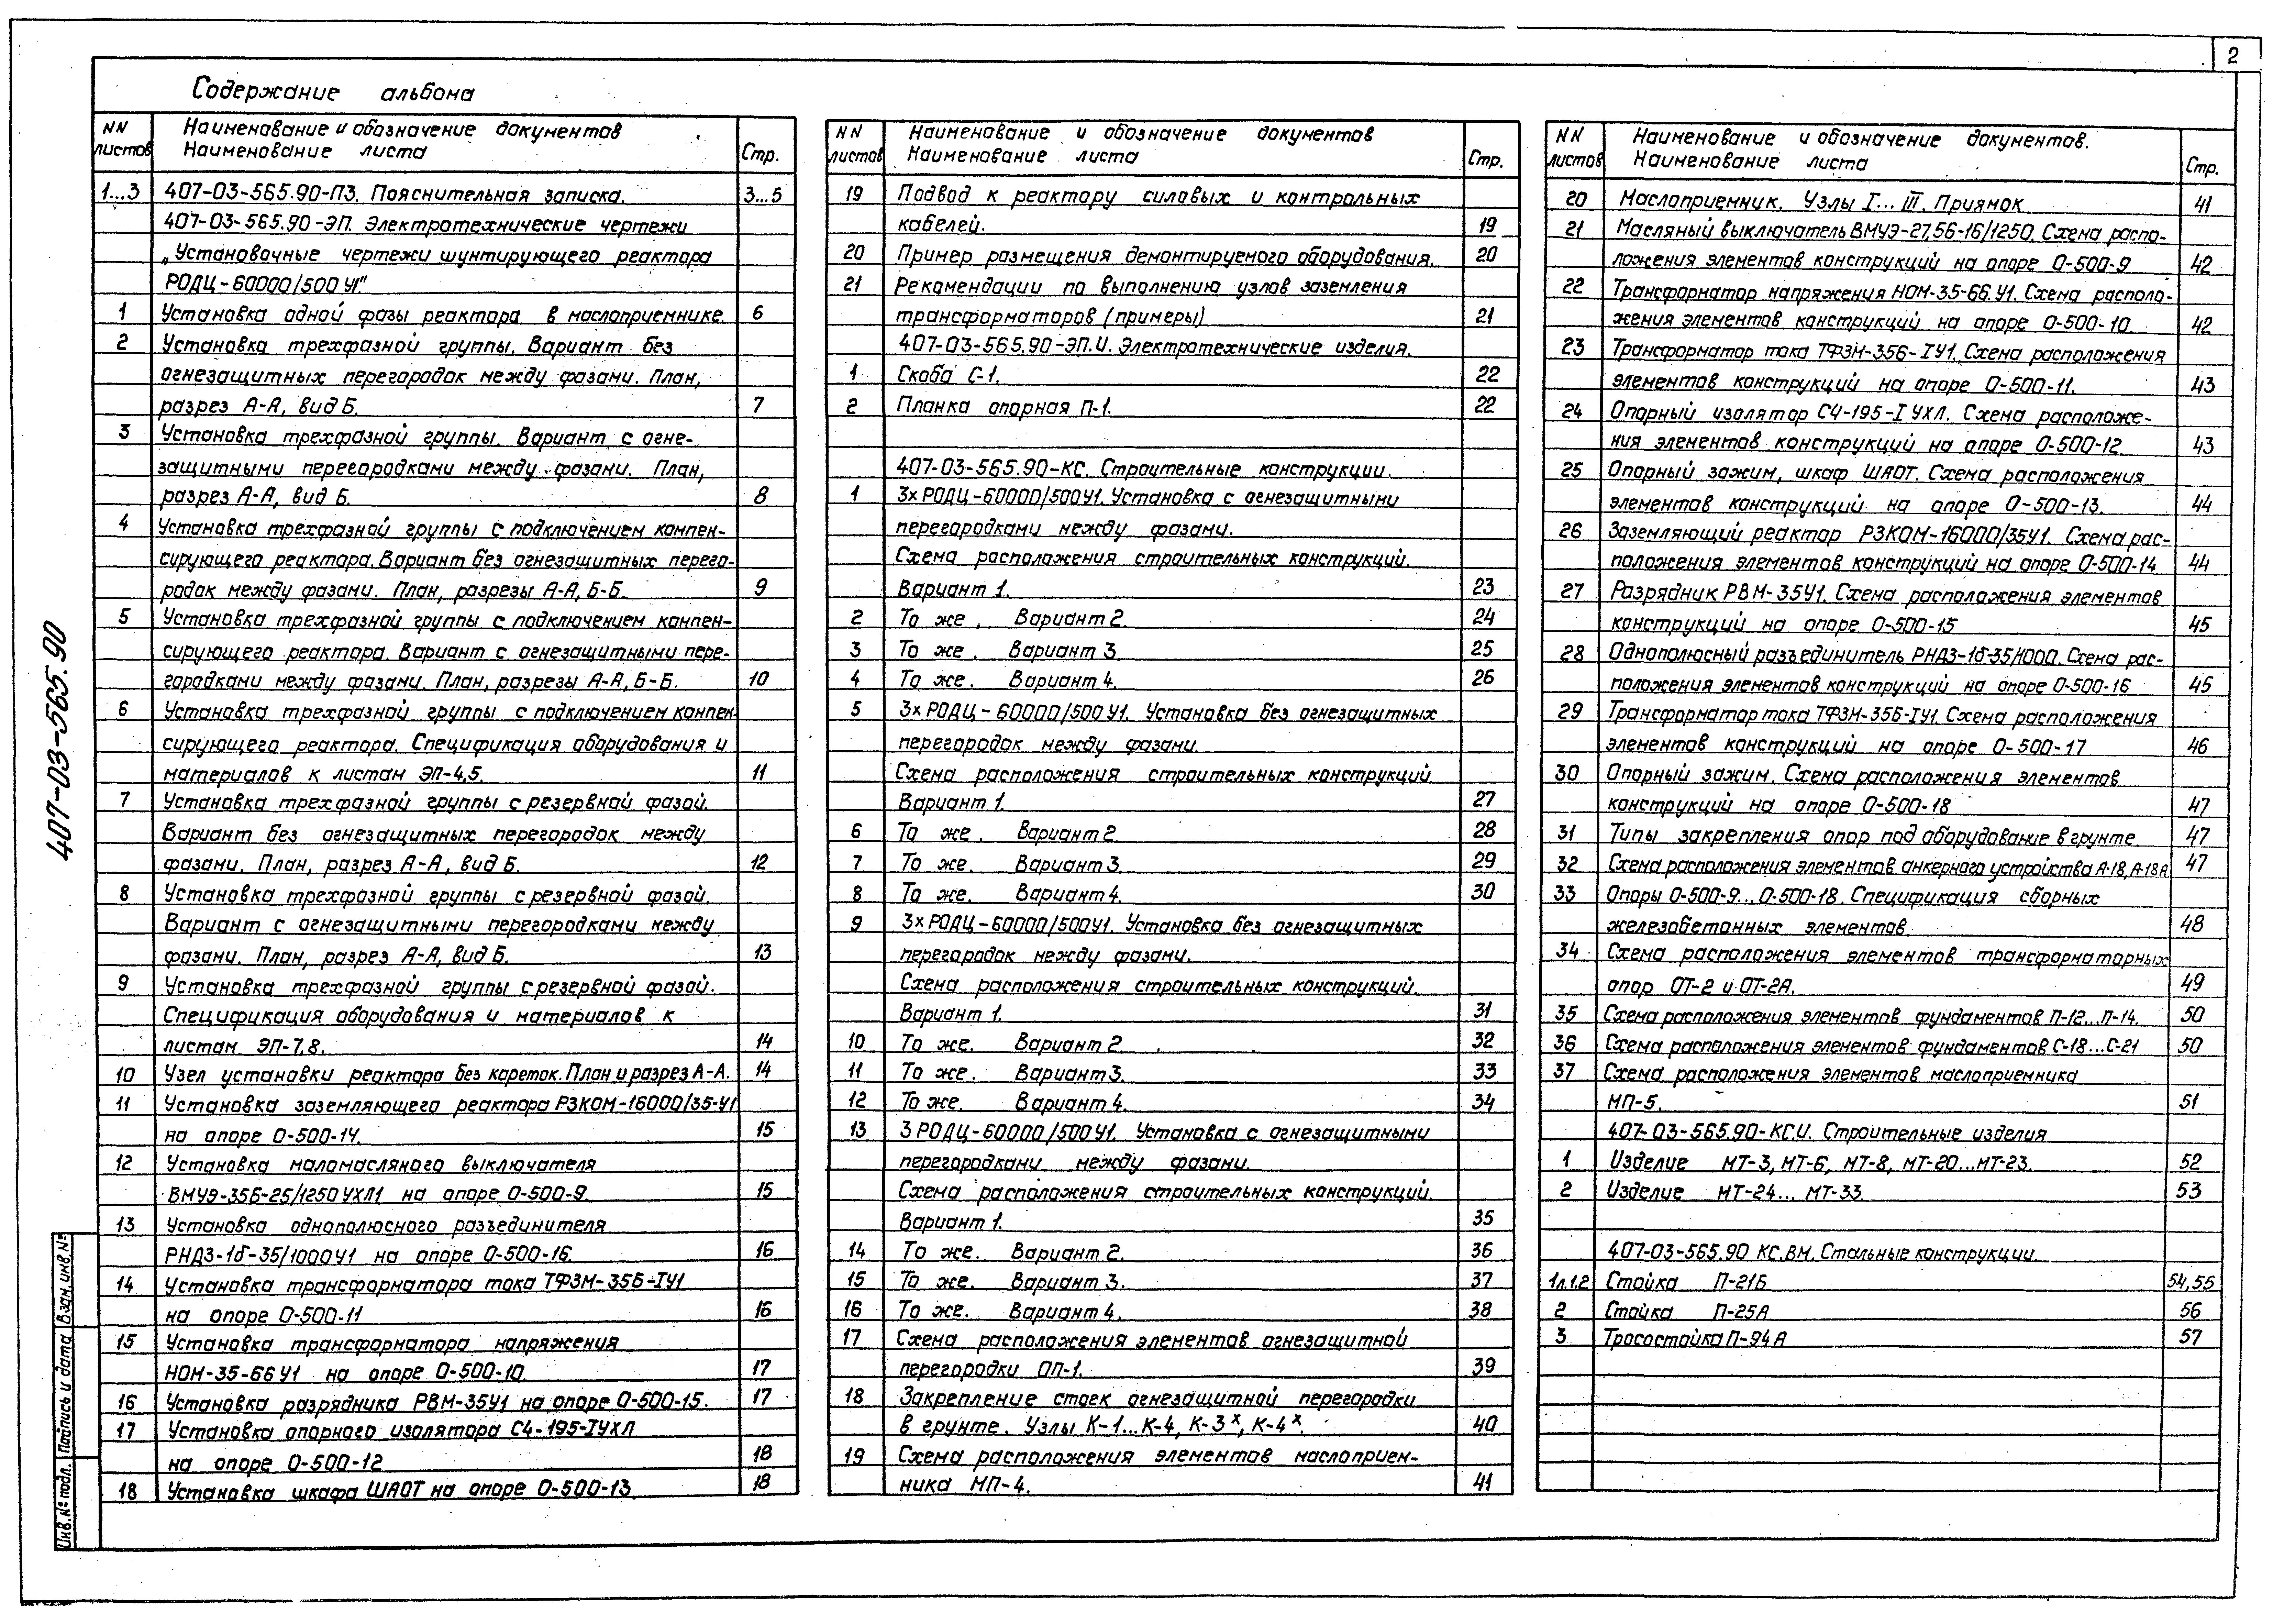 2
Содержание альбома
NN листов
Наименование и обозначение документов
Наименование листа
Стр.
1...3 407-03-565.90-ПЗ. Пояснительная записка. 3...5
407-03-565.90-ЭП. Электротехнические чертежи
„Установочные чертежи шунтирующего реактора
РОДЦ-60000/500 У1"
1 Установка одной фазы реактора в маслоприемнике. 6
2 Установка трехфазной группы. Вариант без
огнезащитных перегородок между фазами. План,
разрез А-А, вид Б. 7
3 Установка трехфазной группы. Вариант с огне-
защитными перегородками между фазами. План,
разрез А-А, вид Б. 8
4 Установка трехфазной группы с подключением компен-
сирующего реактора. Вариант без огнезащитных перего-
родок между фазами. План, разрезы А-А, Б-Б. 9
5 Установка трехфазной группы с подключением компен-
сирующего реактора. Вариант с огнезащитными пере-
городками между фазами. План, разрезы А-А, Б-Б. 10
6 Установка трехфазной группы с подключением компен-
сирующего реактора. Спецификация оборудования и
материалов к листам ЭП-4,5. 11
7 Установка трехфазной группы с резервной фазой.
Вариант без огнезащитных перегородок между
фазами. План, разрез А-А, вид Б. 12
8 Установка трехфазной группы с резервной фазой.
Вариант с огнезащитными перегородками между
фазами. План, разрез А-А, вид Б. 13
9 Установка трехфазной группы с резервной фазой.
Спецификация оборудования и материалов к
листам ЭП-7,8. 14
10 Узел установки реактора без кареток. План и разрез А-А. 14
11 Установка заземляющего реактора РЗКОМ-16000/35-У1
на опоре О-500-14. 15
12 Установка маломасляного выключателя
ВМУЭ-35Б-25/1250 УХЛ1 на опоре О-500-9. 15
13 Установка однополюсного разъединителя
РНДЗ-1б-35/1000У1 на опоре О-500-16. 16
14 Установка трансформатора тока ТФЗМ-35Б-IУ1
на опоре О-500-11 16
15 Установка трансформатора напряжения
НОМ-35-66 У1 на опоре О-500-10. 17
16 Установка разрядника РВМ-35У1 на опоре О-500-15. 17
17 Установка опорного изолятора С4-195-IУХЛ
на опоре О-500-12 18
18 Установка шкафа ШАОТ на опоре О-500-13. 18
NN листов
Наименование и обозначение документов
Наименование листа
Стр.
19 Подвод к реактору силовых и контрольных
кабелей. 19
20 Пример размещения демонтируемого оборудования. 20
21 Рекомендации по выполнению узлов заземления
трансформаторов (примеры) 21
407-03-565.90-ЭП.И. Электротехнические изделия.
1 Скоба С-1. 22
2 Планка опорная П-1. 22
407-03-565.90-КС. Строительные конструкции.
1 3хРОДЦ-60000/500У1. Установка с огнезащитными
перегородками между фазами.
Схема расположения строительных конструкций.
Вариант 1. 23
2 То же. Вариант 2. 24
3 То же. Вариант 3. 25
4 То же. Вариант 4. 26
5 3хРОДЦ-60000/500 У1. Установка без огнезащитных
перегородок между фазами.
Схема расположения строительных конструкций
Вариант 1. 27
6 То же. Вариант 2. 28
7 То же. Вариант 3. 29
8 То же. Вариант 4. 30
9 3хРОДЦ-60000/500У1. Установка без огнезащитных
перегородок между фазами.
Схема расположения строительных конструкций.
Вариант 1. 31
10 То же. Вариант 2 32
11 То же. Вариант 3. 33
12 То же. Вариант 4. 34
13 3 РОДЦ-60000/500У1. Установка с огнезащитными
перегородками между фазами.
Схема расположения строительных конструкций.
Вариант 1. 35
14 То же. Вариант 2. 36
15 То же. Вариант 3. 37
16 То же. Вариант 4. 38
17 Схема расположения элементов огнезащитной
перегородки ОП-1. 39
18 Закрепление стоек огнезащитной перегородки
в грунте. Узлы К-1...К-4, К-3ˣ, К-4ˣ. 40
19 Схема расположения элементов маслоприем-
ника МП-4. 41
NN листов
Наименование и обозначение документов.
Наименование листа
Стр.
20 Маслоприемник. Узлы I...III. Приямок 41
21 Масляный выключатель ВМУЭ-27,5Б-16/1250. Схема распо-
ложения элементов конструкций на опоре О-500-9 42
22 Трансформатор напряжения НОМ-35-66.У1. Схема располо-
жения элементов конструкций на опоре О-500-10. 42
23 Трансформатор тока ТФЗМ-35Б-IУ1. Схема расположения
элементов конструкций на опоре О-500-11. 43
24 Опорный изолятор С4-195-I УХЛ. Схема расположе-
ния элементов конструкций на опоре О-500-12. 43
25 Опорный зажим, шкаф ШАОТ. Схема расположения
элементов конструкций на опоре О-500-13. 44
26 Заземляющий реактор РЗКОМ-16000/35У1. Схема рас-
положения элементов конструкций на опоре О-500-14 44
27 Разрядник РВМ-35У1. Схема расположения элементов
конструкций на опоре О-500-15 45
28 Однополюсный разъединитель РНДЗ-1б-35/1000. Схема рас-
положения элементов конструкций на опоре О-500-16 45
29 Трансформатор тока ТФЗМ-35Б-IУ1. Схема расположения
элементов конструкций на опоре О-500-17 46
30 Опорный зажим. Схема расположения элементов
конструкций на опоре О-500-18 47
31 Типы закрепления опор под оборудование в грунте 47
32 Схема расположения элементов анкерного устройства А-18, А-18А 47
33 Опоры О-500-9...О-500-18. Спецификация сборных
железобетонных элементов 48
34 Схема расположения элементов трансформаторных
опор ОТ-2 и ОТ-2А. 49
35 Схема расположения элементов фундаментов П-12...П-14. 50
36 Схема расположения элементов фундаментов С-18...С-21 50
37 Схема расположения элементов маслоприемника
МП-5. 51
407-03-565.90-КС.И. Строительные изделия
1 Изделие МТ-3, МТ-6, МТ-8, МТ-20...МТ-23. 52
2 Изделие МТ-24... МТ-33. 53
407-03-565.90 КС.ВМ. Стальные конструкции.
1л.1.2 Стойка П-21Б 54,55
2 Стойка П-25А 56
3 Тросостойка П-94А 57
407-03-565.90
Взам. инв. №
Подпись и дата
Инв. № подл.